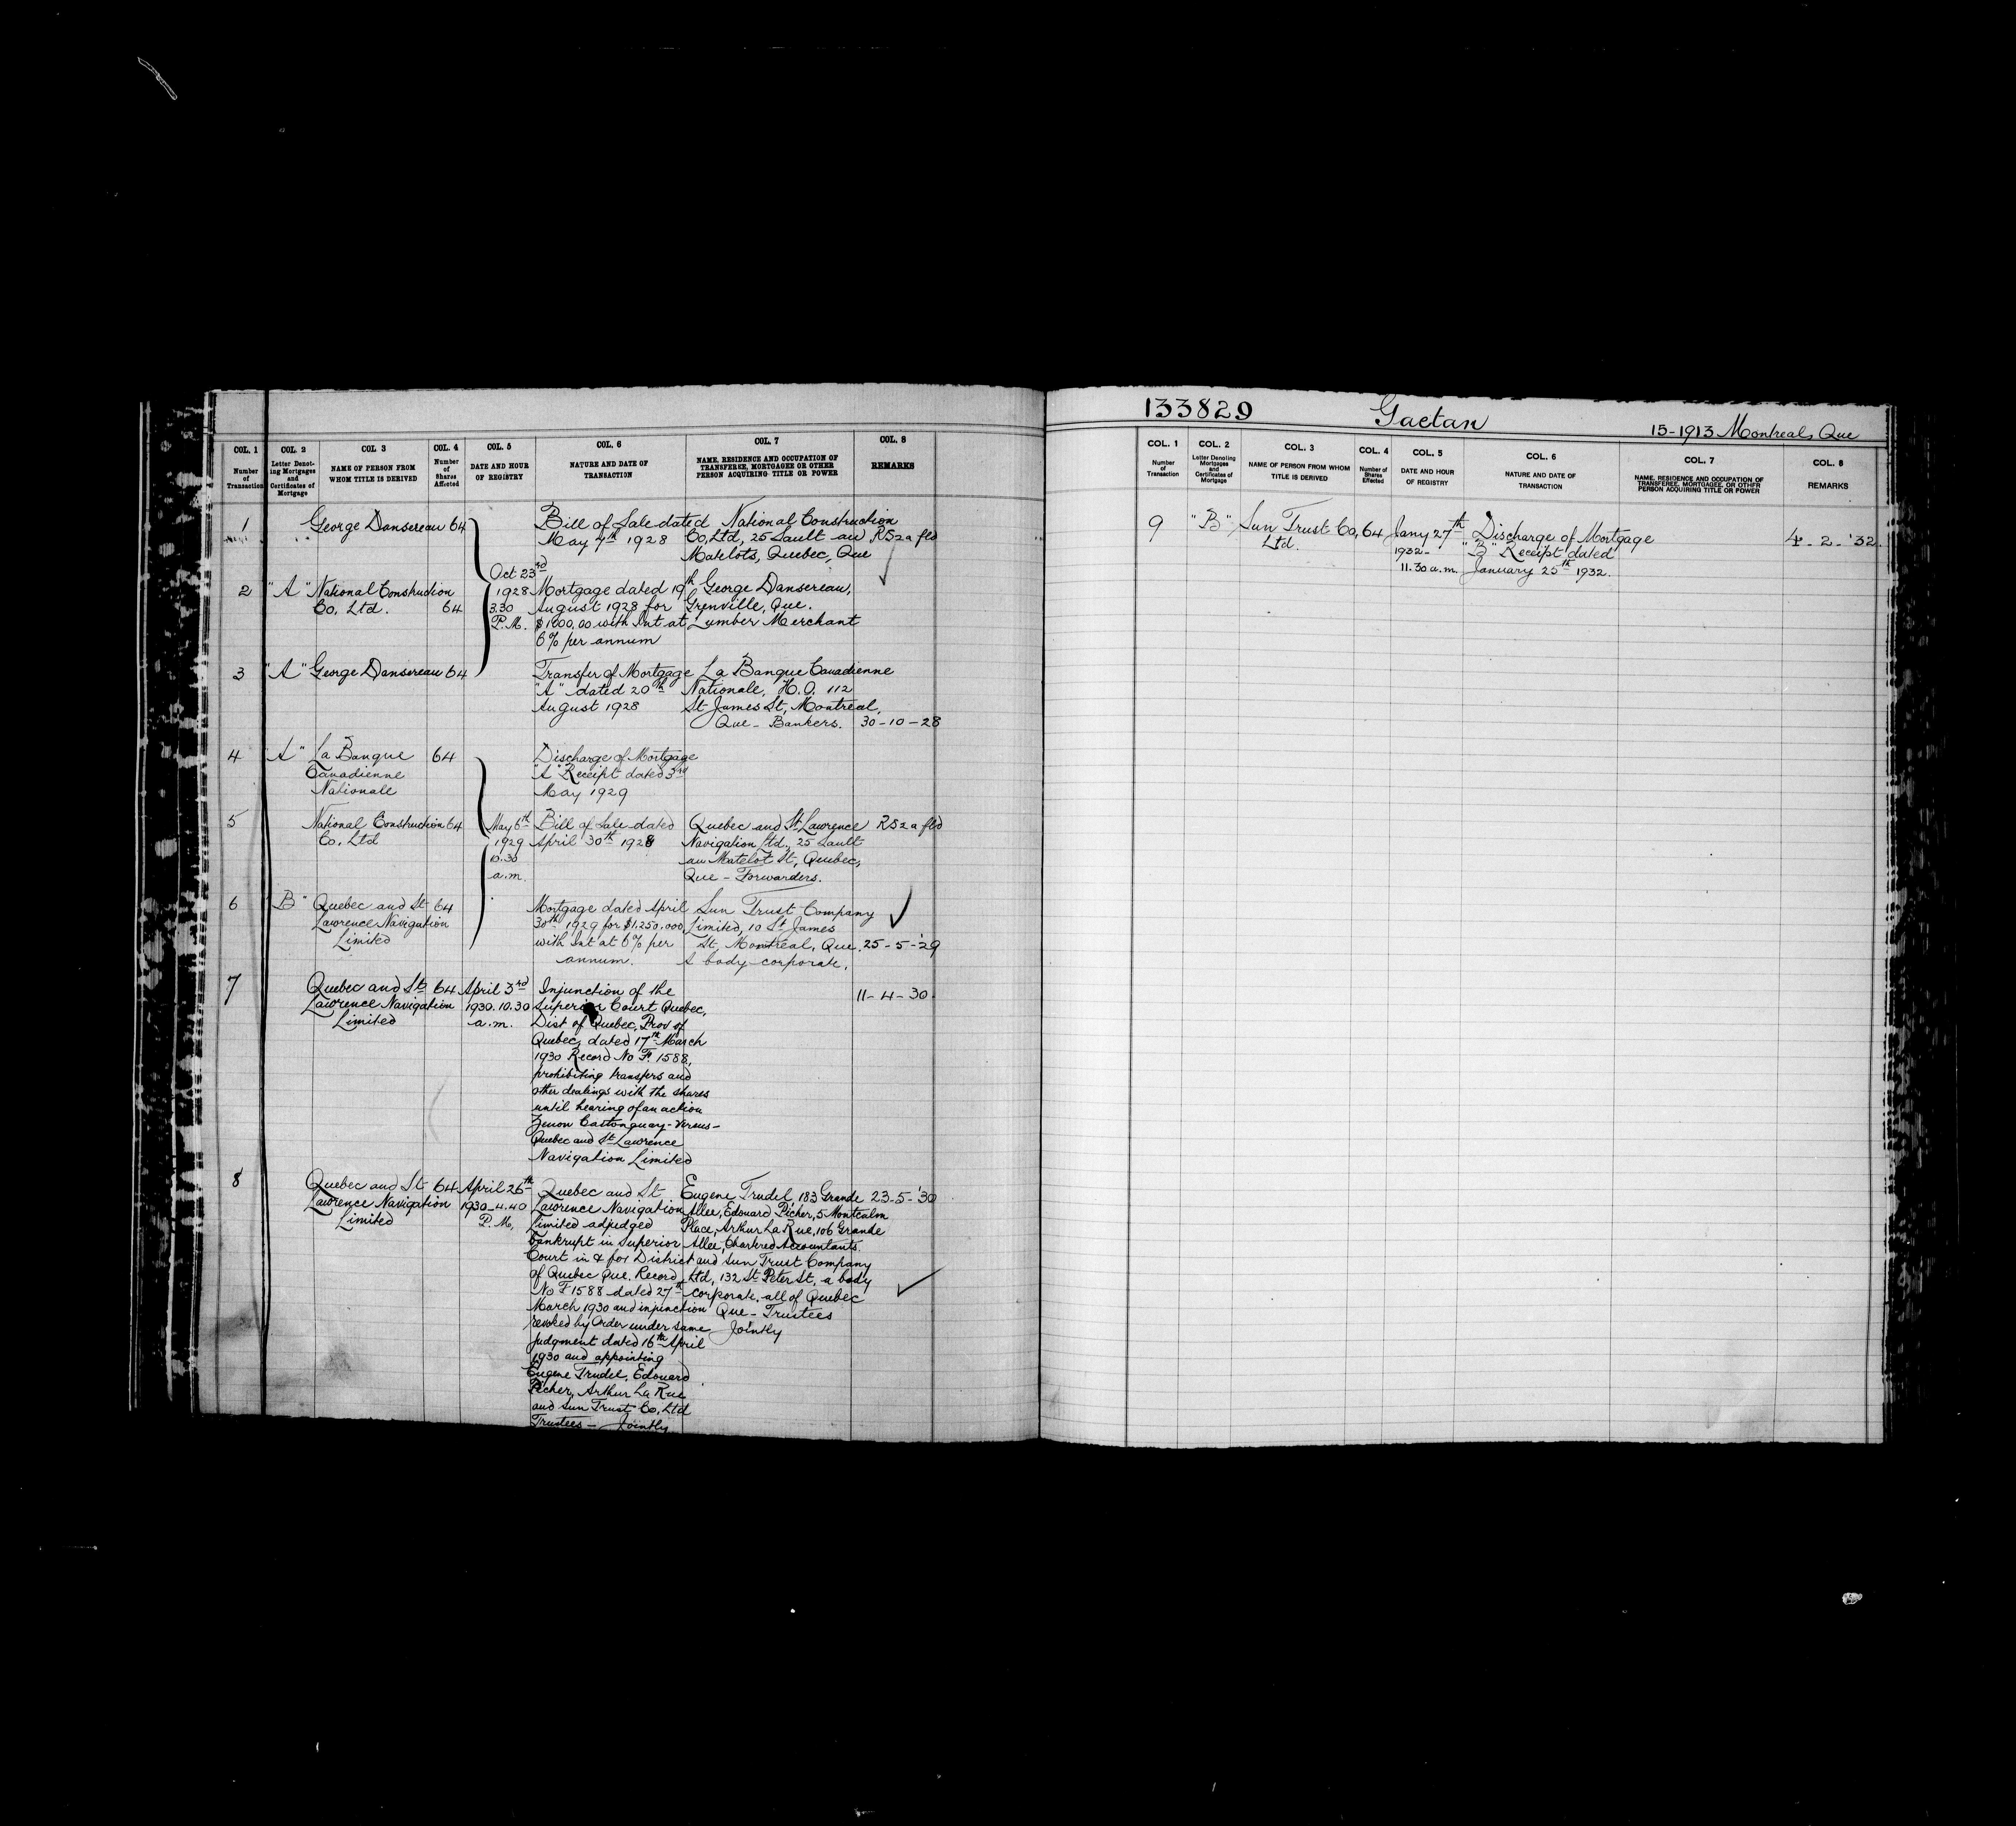 COL. 1 COL. 2 COL. 3 COL. 4 COL. 5 COL. 6 COL. 7 COL. 8
Number of Transaction
Letter Denoting Mortgages and Certificates of Mortgage
NAME OF PERSON FROM WHOM TITLE IS DERIVED
Number of Shares Affected
DATE AND HOUR OF REGISTRY
NATURE AND DATE OF TRANSACTION
NAME, RESIDENCE AND OCCUPATION OF TRANSFEREE, MORTGAGEE OR OTHER PERSON ACQUIRING TITLE OR POWER
REMARKS
1 George Dansereau 64 Bill of Sale dated National Construction
May 7th 1928 Co, Ltd, 25 Sault au RS2a fld
Matelots, Quebec, Que
Oct 23rd
2 "A" National Construction 1928 Mortgage dated 19th George Dansereau,
Co, Ltd. 64 3.30 August 1928 for Grenville, Que.
P.M. $1000.00 with Int at Lumber Merchant
6% per annum
3 "A" George Dansereau 64 Transfer of Mortgage La Banque Canadienne
"A" dated 20th Nationale, H.O. 112
August 1928 St James St, Montreal,
Que - Bankers. 30-10-28
4 "A" La Banque 64 Discharge of Mortgage
Canadienne "A" Receipt dated 3rd
Nationale May 1929
5 National Construction 64 May 6th Bill of Sale dated Quebec and St Lawrence RS2a fld
Co, Ltd 1929 April 30th 1928 Navigation Ltd., 25 Sault
10.30 au Matelot St, Quebec,
a.m. Que - Forwarders.
6 "B" Quebec and St 64 Mortgage dated April Sun Trust Company
Lawrence Navigation 30th 1929 for $1,250,000 Limited, 10 St James
Limited with Int at 6% per St, Montreal, Que. 25-5-'29
annum. A body corporate.
7 Quebec and St 64 April 3rd Injunction of the 11-4-30.
Lawrence Navigation 1930.10.30 Superior Court Quebec,
Limited a.m. Dist of Quebec, Prov of
Quebec, dated 17th March
1930 Record No F. 1588,
prohibiting transfers and
other dealings with the shares
until hearing of an action
Zenon Cattonguay - Versus -
Quebec and St Lawrence
Navigation Limited
8 Quebec and St 64 April 26th Quebec and St Eugene Trudel, 183 Grande 23-5-'30
Lawrence Navigation 1930_4.40 Lawrence Navigation Allee, Edouard Picher, 5 Montcalm
Limited P.M. Limited adjedged Place, Arthur La Rue, 106 Grande
bankrupt in Superior Allee, Chartered Accountants.
Court in & for District and Sun Trust Company
of Quebec Que. Record Ltd, 132 St Peter St, a body
No F 1588 dated 27th corporate, all of Quebec
March 1930 and injunction Que - Trustees
revoked by Order under same Jointly
judgment dated 16th April
1930 and appointing
Eugene Trudel, Edouard
Picher, Arthur La Rue
and Sun Trust Co, Ltd
Trustees - Jointly
133829 Gaetan 15-1913 Montreal, Que
COL. 1 COL. 2 COL. 3 COL. 4 COL. 5 COL. 6 COL. 7 COL. 8
Number of Transaction
Letter Denoting Mortgages and Certificates of Mortgage
NAME OF PERSON FROM WHOM TITLE IS DERIVED
Number of Shares Effected
DATE AND HOUR OF REGISTRY
NATURE AND DATE OF TRANSACTION
NAME, RESIDENCE AND OCCUPATION OF TRANSFEREE, MORTGAGEE, OR OTHER PERSON ACQUIRING TITLE OR POWER
REMARKS
9 "B" Sun Trust Co, 64 Jany 27th Discharge of Mortgage 4-2-'32.
Ltd. 1932- "B" Receipt dated
11.30 a.m. January 25th 1932.